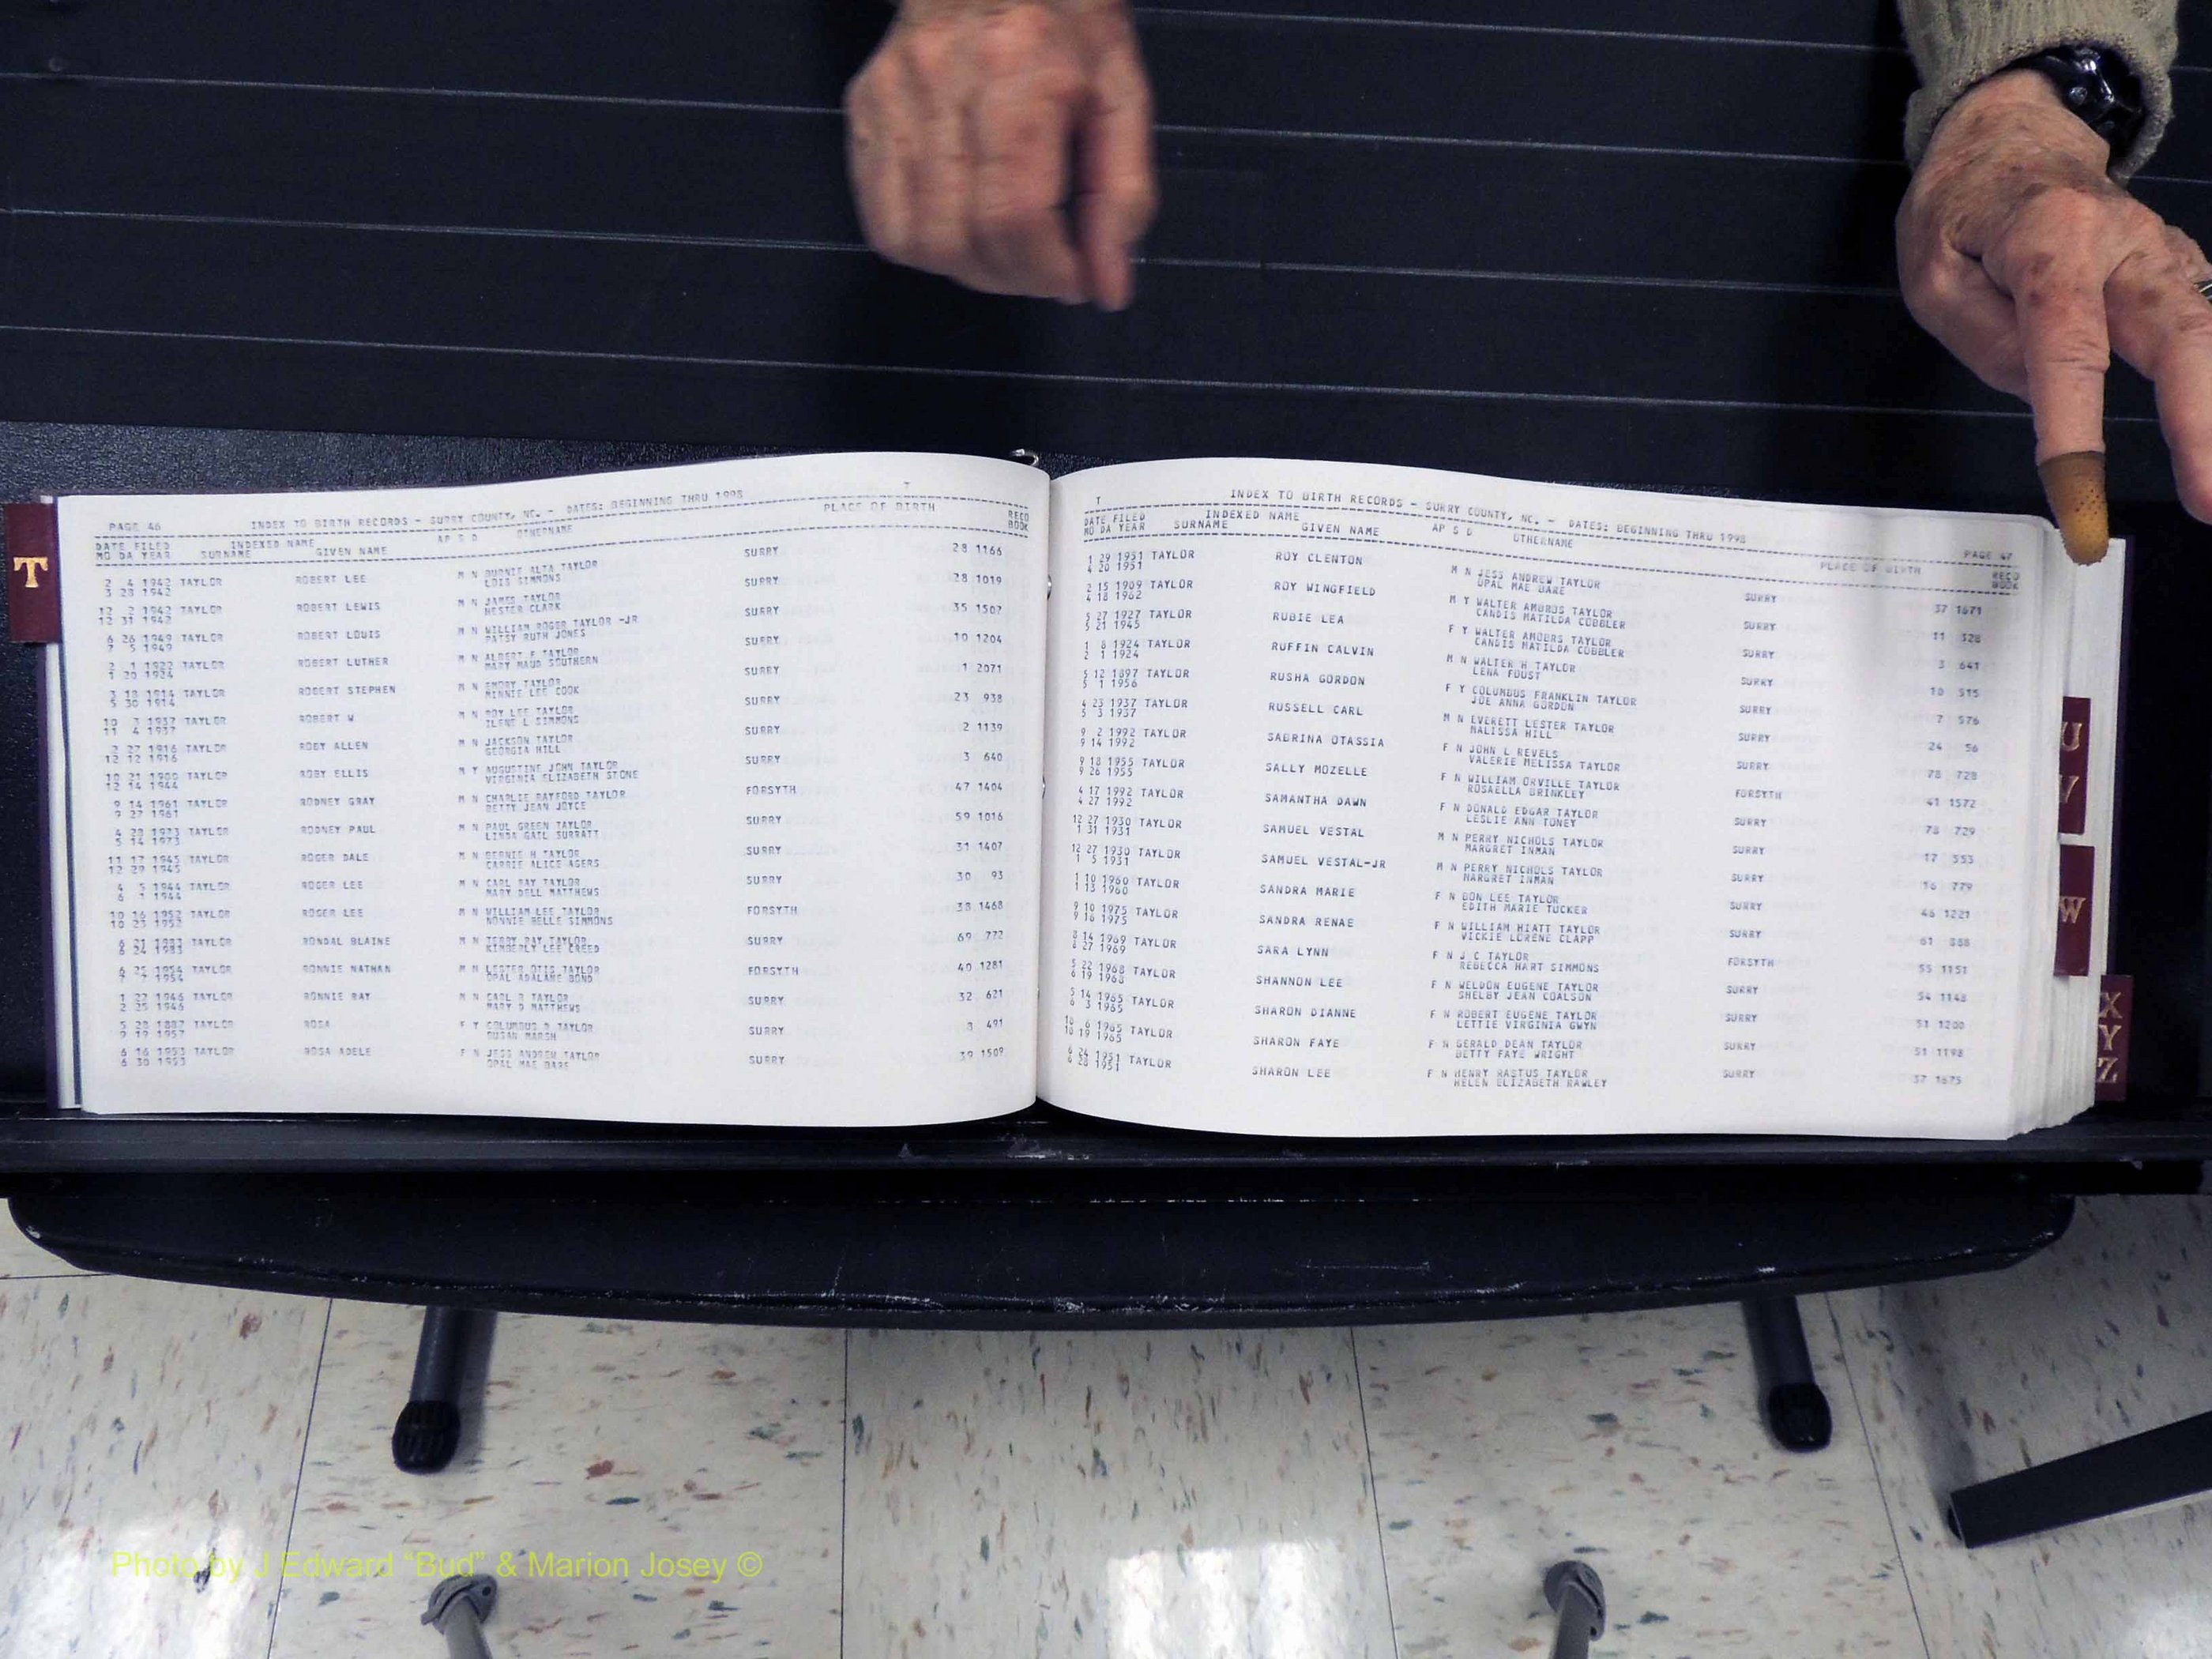 T
T
PAGE 46 INDEX TO BIRTH RECORDS - SURRY COUNTY, NC. - DATES: BEGINNING THRU 1998
DATE FILED INDEXED NAME AP S D OTHERNAME PLACE OF BIRTH RECO
MO DA YEAR SURNAME GIVEN NAME BOOK
2 4 1942 TAYLOR ROBERT LEE M N BURNIE ALTA TAYLOR SURRY 28 1166
3 28 1942 LOIS SIMMONS
12 2 1942 TAYLOR ROBERT LEWIS M N JAMES TAYLOR SURRY 28 1019
12 31 1942 HESTER CLARK
6 26 1949 TAYLOR ROBERT LOUIS M N WILLIAM ROGER TAYLOR -JR SURRY 35 1507
7 5 1949 PATSY RUTH JONES
2 1 1922 TAYLOR ROBERT LUTHER M N ALBERT F TAYLOR SURRY 10 1204
1 20 1924 MARY MAUD SOUTHERN
3 18 1914 TAYLOR ROBERT STEPHEN M N EMORY TAYLOR SURRY 1 2071
5 30 1914 MINNIE LEE COOK
10 3 1937 TAYLOR ROBERT W M N ROY LEE TAYLOR SURRY 23 938
11 4 1937 ILENE L SIMMONS
2 27 1916 TAYLOR ROBY ALLEN M N JACKSON TAYLOR SURRY 2 1139
12 12 1916 GEORGIA HILL
10 21 1900 TAYLOR ROBY ELLIS M Y AUGUSTINE JOHN TAYLOR SURRY 3 640
12 14 1944 VIRGINIA ELIZABETH STONE
9 14 1961 TAYLOR RODNEY GRAY M N CHARLIE RAYFORD TAYLOR FORSYTH 47 1404
9 27 1961 BETTY JEAN JOYCE
4 28 1973 TAYLOR RODNEY PAUL M N PAUL GREEN TAYLOR SURRY 59 1016
5 14 1973 LINDA GAIL SURRATT
11 17 1945 TAYLOR ROGER DALE M N BERNIE H TAYLOR SURRY 31 1407
12 29 1945 CARRIE ALICE AGERS
4 5 1944 TAYLOR ROGER LEE M N CARL RAY TAYLOR SURRY 30 93
6 1944 MARY DELL MATTHEWS
10 16 1952 TAYLOR ROGER LEE M N WILLIAM LEE TAYLOR FORSYTH 38 1468
10 23 1952 NONNIE BELLE SIMMONS
6 21 1983 TAYLOR RONDAL BLAINE M N TERRY RAY TAYLOR SURRY 69 772
6 24 1983 KIMBERLY LEE CREED
6 25 1954 TAYLOR RONNIE NATHAN M N LESTER OTIS TAYLOR FORSYTH 40 1281
7 7 1954 OPAL ADALANE BOND
1 27 1946 TAYLOR RONNIE RAY M N CARL R TAYLOR SURRY 32 621
2 25 1946 MARY D MATTHEWS
5 28 1887 TAYLOR ROSA F Y COLUMBUS D TAYLOR SURRY 3 491
9 19 1957 SUSAN MARSH
6 16 1953 TAYLOR ROSA ADELE F N JESS ANDREW TAYLOR SURRY 39 1509
6 30 1953 OPAL MAE DARE
T INDEX TO BIRTH RECORDS - SURRY COUNTY, NC. - DATES: BEGINNING THRU 1998 PAGE 47
DATE FILED INDEXED NAME AP S D OTHERNAME PLACE OF BIRTH RECO
MO DA YEAR SURNAME GIVEN NAME BOOK
1 29 1951 TAYLOR ROY CLENTON M N JESS ANDREW TAYLOR SURRY 37 1671
4 20 1951 OPAL MAE DARE
2 15 1909 TAYLOR ROY WINGFIELD M Y WALTER AMBROS TAYLOR SURRY 11 328
4 18 1962 CANDIS MATILDA COBBLER
5 27 1927 TAYLOR RUBIE LEA F Y WALTER AMOBRS TAYLOR SURRY 3 641
5 21 1945 CANDIS MATILDA COBBLER
1 8 1924 TAYLOR RUFFIN CALVIN M N WALTER H TAYLOR SURRY 10 515
2 1 1924 LENA FOUST
5 12 1897 TAYLOR RUSHA GORDON F Y COLUMBUS FRANKLIN TAYLOR SURRY 7 576
5 1 1956 JOE ANNA GORDON
4 23 1937 TAYLOR RUSSELL CARL M N EVERETT LESTER TAYLOR SURRY 24 56
5 3 1937 MALISSA HILL
9 2 1992 TAYLOR SABRINA OTASSIA F N JOHN L REVELS SURRY 78 728
9 14 1992 VALERIE MELISSA TAYLOR
9 18 1955 TAYLOR SALLY MOZELLE F N WILLIAM ORVILLE TAYLOR FORSYTH 41 1572
9 26 1955 ROSAELLA BRINKLEY
4 17 1992 TAYLOR SAMANTHA DAWN F N DONALD EDGAR TAYLOR SURRY 78 729
4 27 1992 LESLIE ANN TONEY
12 27 1930 TAYLOR SAMUEL VESTAL M N PERRY NICHOLS TAYLOR SURRY 17 553
1 31 1931 MARGRET INMAN
12 27 1930 TAYLOR SAMUEL VESTAL-JR M N PERRY NICHOLS TAYLOR SURRY 16 779
1 5 1931 MARGRET INMAN
1 10 1960 TAYLOR SANDRA MARIE F N DON LEE TAYLOR SURRY 46 1221
1 13 1960 EDITH MARIE TUCKER
9 10 1975 TAYLOR SANDRA RENAE F N WILLIAM HIATT TAYLOR SURRY 61 888
9 16 1975 VICKIE LORENE CLAPP
8 14 1969 TAYLOR SARA LYNN F N J C TAYLOR FORSYTH 55 1151
8 27 1969 REBECCA HART SIMMONS
5 22 1968 TAYLOR SHANNON LEE F N WELDON EUGENE TAYLOR SURRY 54 1148
6 19 1968 SHELBY JEAN COALSON
5 14 1965 TAYLOR SHARON DIANNE F N ROBERT EUGENE TAYLOR SURRY 51 1200
6 3 1965 LETTIE VIRGINIA GWYN
10 6 1965 TAYLOR SHARON FAYE F N GERALD DEAN TAYLOR SURRY 51 1198
10 19 1965 BETTY FAYE WRIGHT
6 24 1951 TAYLOR SHARON LEE F N HENRY RASTUS TAYLOR SURRY 37 1675
6 28 1951 HELEN ELIZABETH RAWLEY
U
V
W
X
Y
Z
Photo by J Edward "Bud" & Marion Josey ©